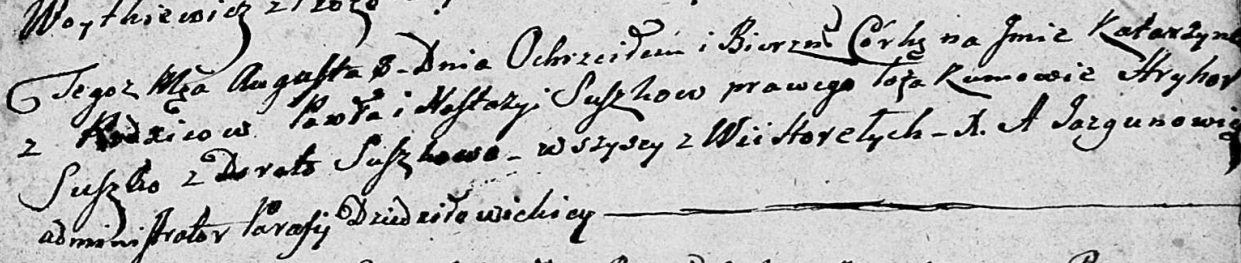 Woytkiewicz z
Tegoż Mca Augusta 8 - Dnia Ochrzciłem i Bierzm Córkę na Jmie Katarzynę
z Rodzicow Pawła i Nastazyi Suszkow prawego łoża Kumowie Hryhor
Suszko z Dorotą Suszkową - wszyscy z Wsi Horełych - X. A Jazgunowicz
administrator Parafij Dziedziłowickiey